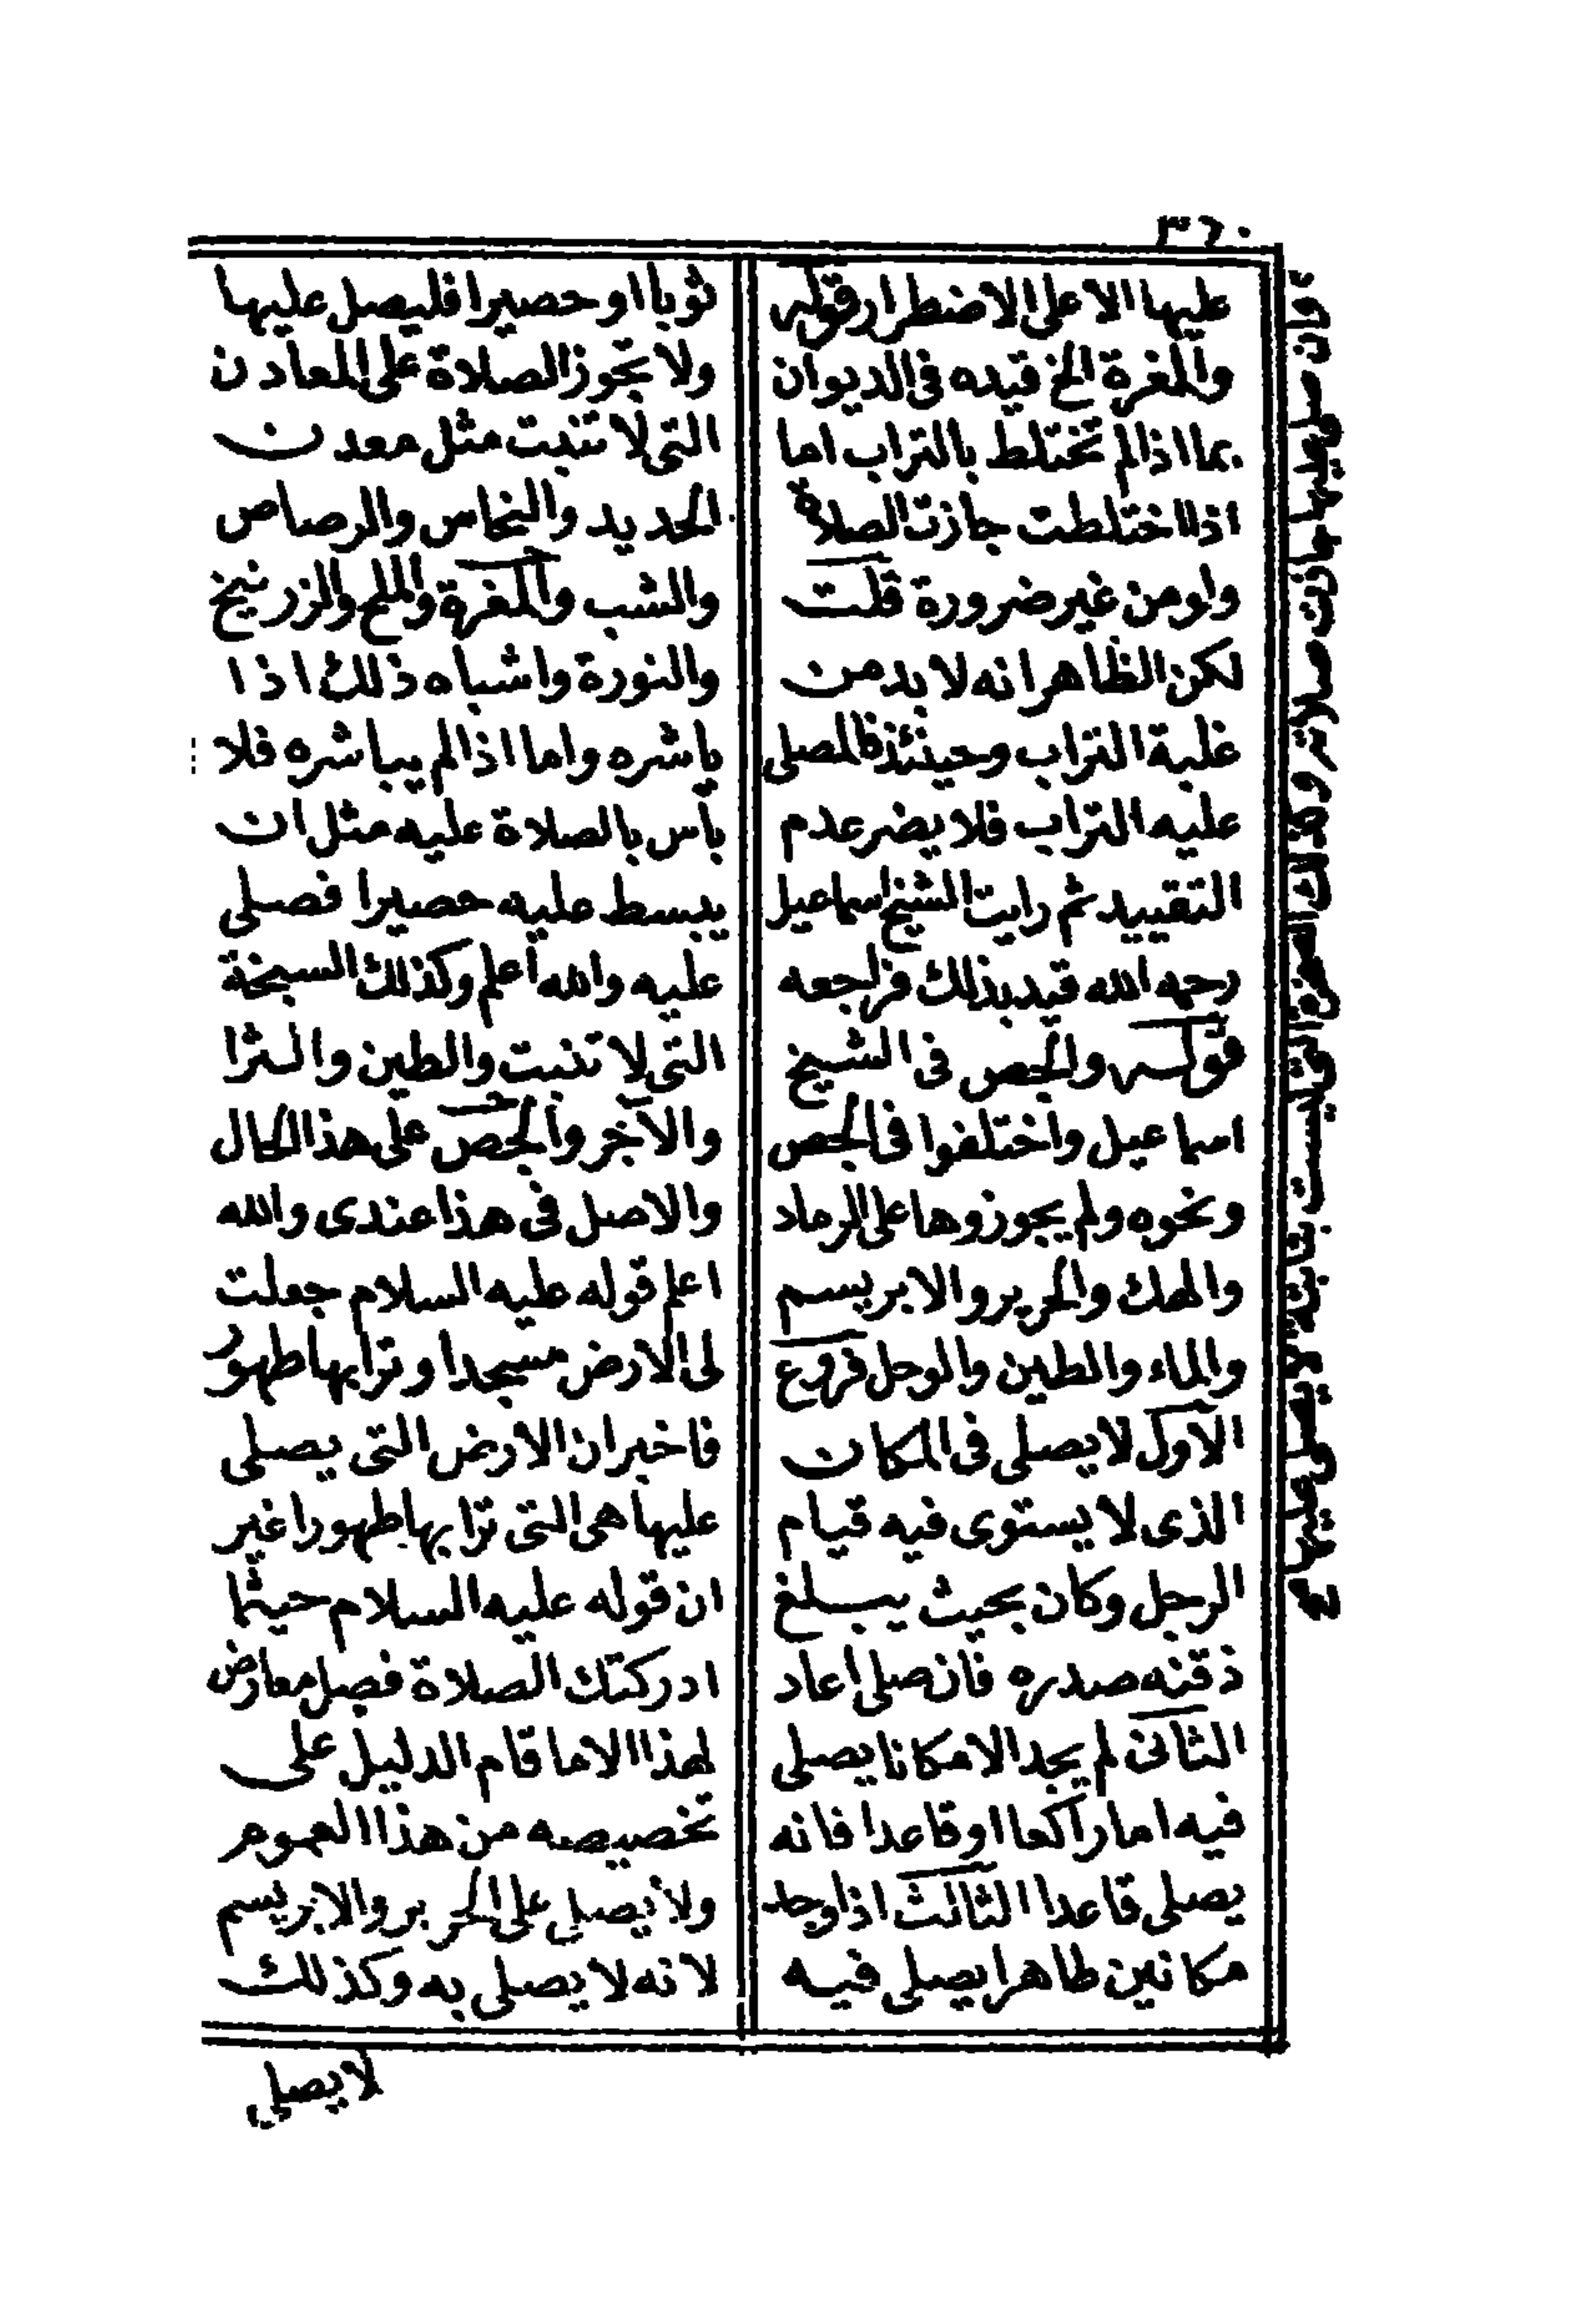 ٣٦٠
عليها الا على الاضطرار قوله
والمغرة الخ قيده في الديوان
بما اذا لم تختلط بالتراب اما
اذا اختلطت جازت الصلاة
ولو من غير ضرورة قلت
لكن الظاهر انه لا بد من
غلبة التراب وحينئذ فالمصلى
عليه التراب فلا يضر عدم
التقييد ثم رايت الشيخ اسماعيل
رحمه الله قيد بذلك فراجعه
قوله والجص في الشيخ
اسماعيل واختلفوا في الجص
ونحوه ولم يجوزوها على الرماد
والمك والحرير والابريسم
والماء والطين والوحل فروع
الاول لا يصلى في المكان
الذى لا يستوى فيه قيام
الرجل وكان بحيث يبلغ
ذقنه صدره فان صلى اعاد
الثانى لم يجد الا مكانا يصلى
فيه اما راكعا او قاعدا فانه
يصلى قاعدا الثالث اذا وجد
مكانين طاهرا يصلى فيه
ثوبا او حصيرا فليصل عليها
ولا تجوز الصلاة على المعادن
التى لا تنبت مثل معدن
الحديد والنحاس والرصاص
والشب والمغرة والملح والزرنيخ
والنورة واشباه ذلك اذا
باشره واما اذا لم يباشره فلا
بأس بالصلاة عليه مثل ان
يبسط عليه حصيرا فصلى
عليه والله أعلم وكذلك السبخة
التى لا تنبت والطين والثرا
والآجر والجص على هذا الحال
والاصل في هذا عندى والله
اعلم قوله عليه السلام جعلت
لى الارض مسجدا وترابها طهورا
فاخبر ان الارض التى يصلى
عليها هى التى ترابها طهورا غير
ان قوله عليه السلام حيثما
ادركتك الصلاة فصل معارض
لهذا الا ما قام الدليل على
تخصيصه من هذا العموم
ولا يصلى على الحرير والابريسم
لانه لا يصلى به وكذلك
لا يصلى
فان صلى عليها جازت صلاته وكذلك